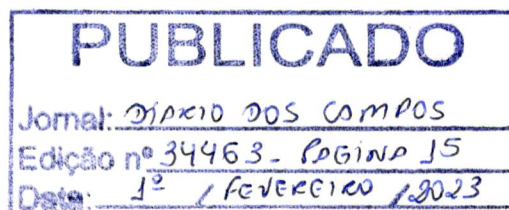 PUBLICADO
Jornal: DIÁRIO DOS CAMPOS
Edição nº 34463 - PÁGINA 15
Data: 1º / FEVEREIRO / 2023